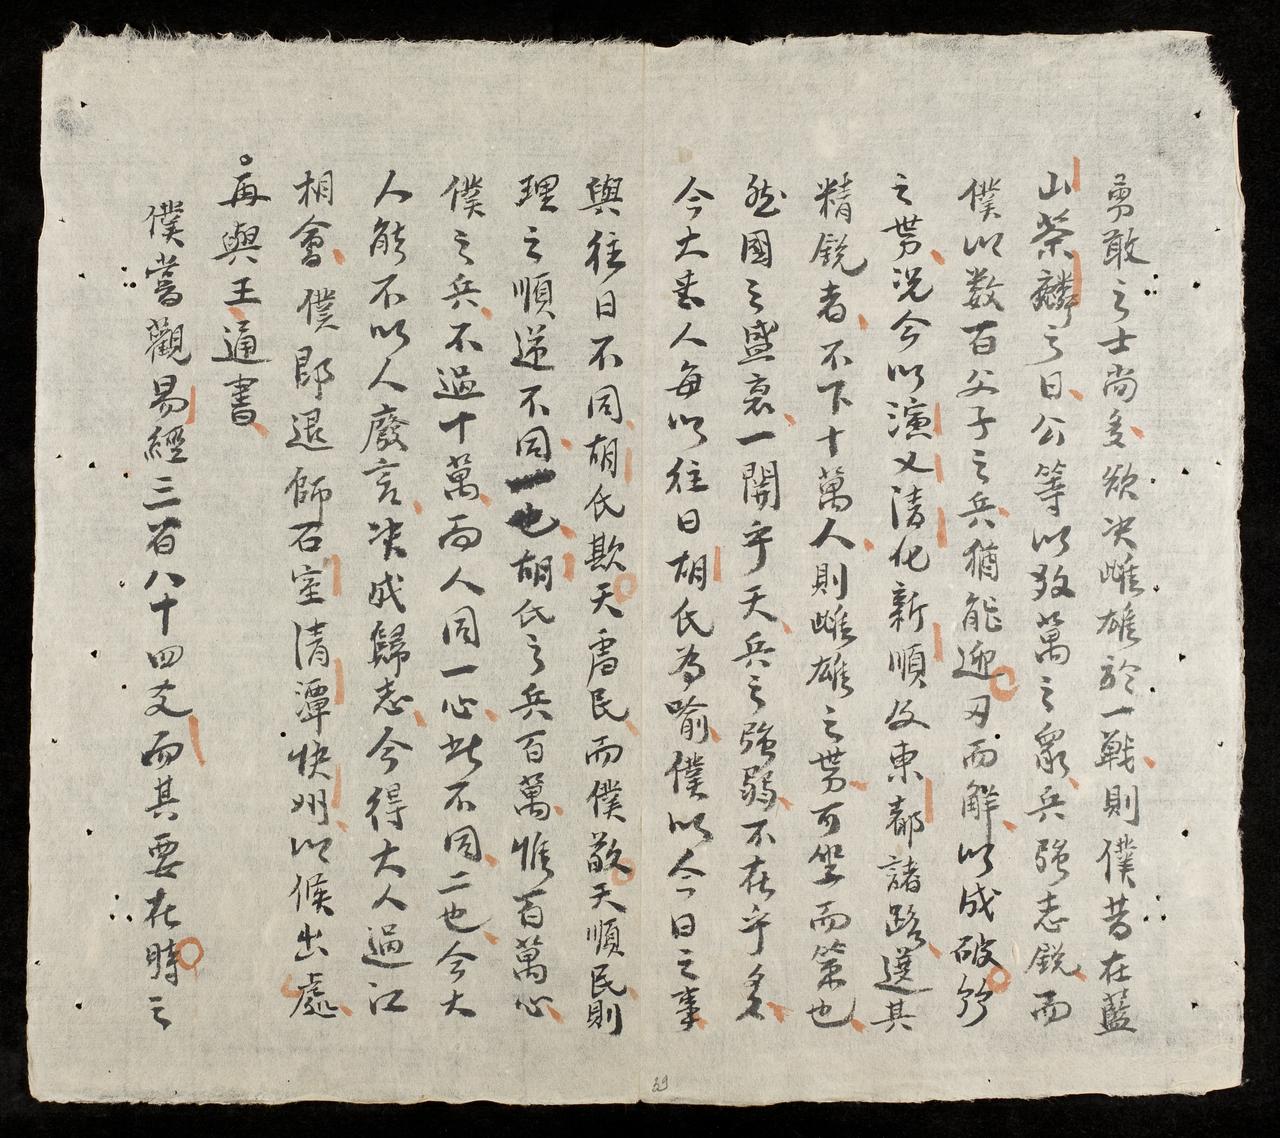 勇敢之士尚多欲决雌雄於一戰則僕昔在藍
山荣麟之日公等以数萬之衆兵强志銳而
僕以数百父子之兵猶能迎刃而觧以成破竹
之势况今以演乂清化新順及東都諸路選其
精銳者不下十萬人則雌雄之势可坐而策也
然國之盛衰一関乎天兵之强弱不在乎多
今大人每以往日胡氏為喻僕以今日之事
與往日不同胡氏欺天虐民而僕敬天順民則
理之順逆不同一也胡氏之兵百萬惟百萬心
僕之兵不過十萬而人同一心此不同二也今大
人能不以人廢言决成歸志今得大人過江
相會僕即退師石室清潭快州以候出處
再與王通書
僕嘗觀易經三百八十四爻而其要在時之
39